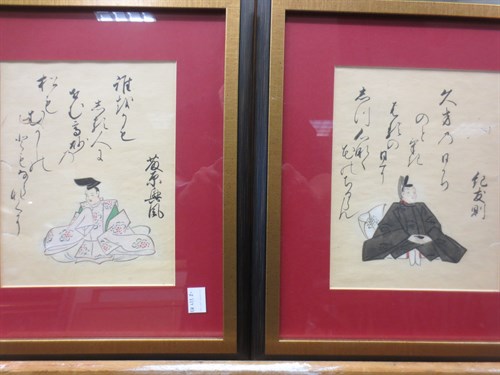 誰をかも
しる人に
せむ高砂の
松も
むかしの
友ならなくに
藤原興風
紀友則
久方のひかり
のどけき
春の日に
しづ心なく
花のちるらん